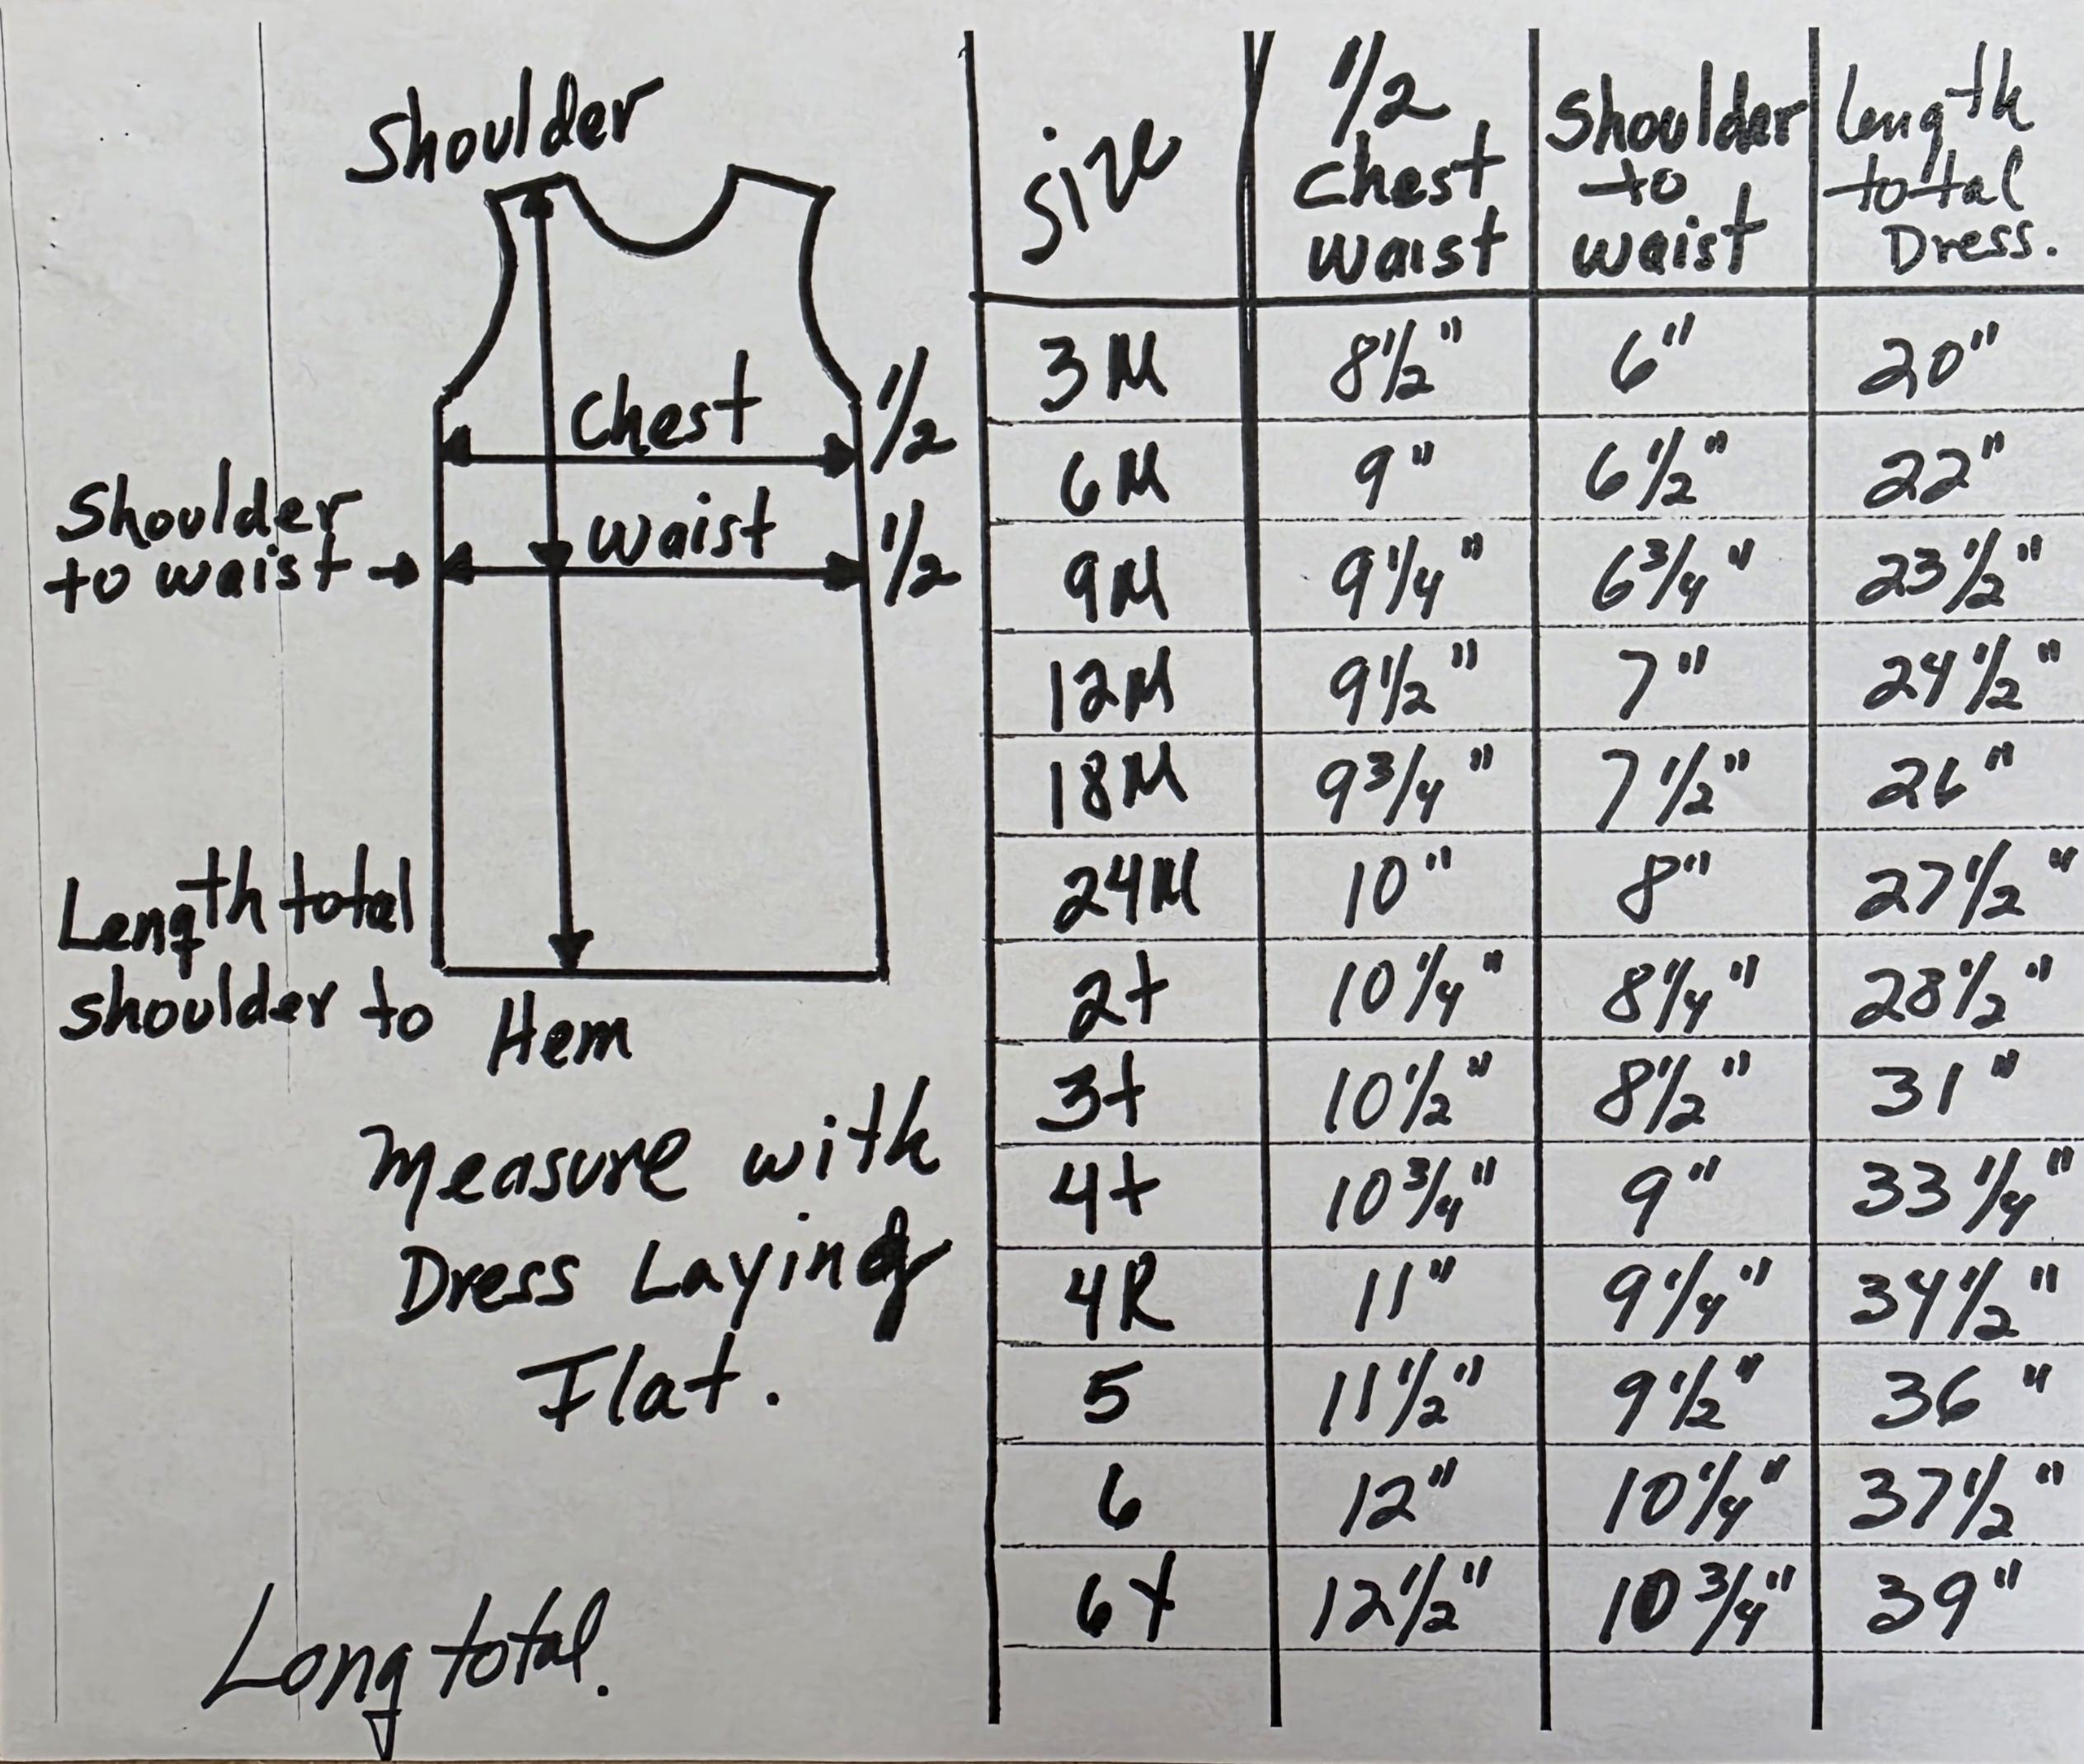 Shoulder
Chest 1/2
Shoulder
to waist → waist 1/2
Length total
shoulder to Hem
Measure with
Dress Laying
Flat.
Long total.
Size | 1/2 Chest waist | Shoulder to waist | Length total Dress.
3M 8 1/2" 6" 20"
6M 9" 6 1/2" 22"
9M 9 1/4" 6 3/4" 23 1/2"
12M 9 1/2" 7" 24 1/2"
18M 9 3/4" 7 1/2" 26"
24M 10" 8" 27 1/2"
2t 10 1/4" 8 1/4" 28 1/2"
3t 10 1/2" 8 1/2" 31"
4t 10 3/4" 9" 33 1/4"
4R 11" 9 1/4" 34 1/2"
5 11 1/2" 9 1/2" 36"
6 12" 10 1/4" 37 1/2"
6X 12 1/2" 10 3/4" 39"